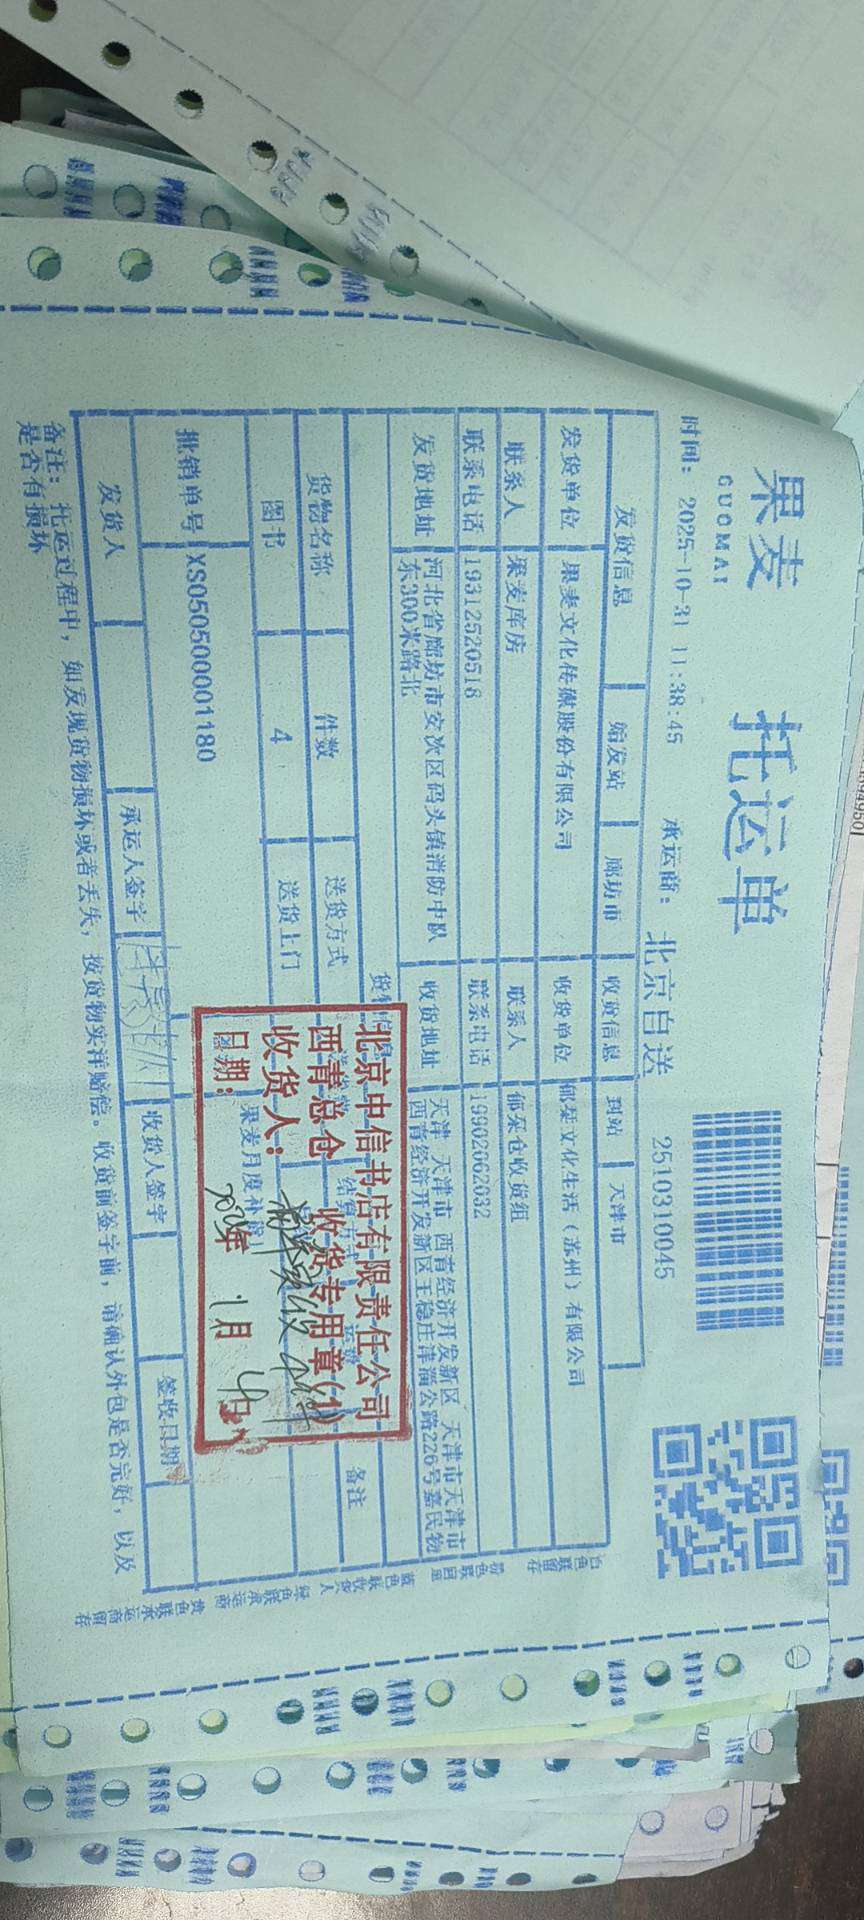 果麦
GUOMAI
托运单
2510310045
时间: 2025-10-31 11:38:45 承运商: 北京自送
发货信息 始发站 廊坊市 收货信息 到站 天津市
发货单位 果麦文化传媒股份有限公司 收货单位 文化生活（苏州）有限公司
联系人 果麦库房 联系人 仓收货组
联系电话 19312520518 联系电话 19902062032
发货地址 河北省廊坊市安次区码头镇消防中队东300米路北 收货地址 天津 天津市 西青经济开发新区 天津市天津市西青经济开发新区王稳庄津淄公路226号嘉民物
货物名称 件数 送货方式 备注
图书 4 送货上门
批销单号 XS050500001180 果麦月度补货
发货人 承运人签字 收货人签字 签收日期
备注: 托运过程中，如发现货物损坏或者丢失，按货物实洋赔偿。收货前签字前，请确认外包是否完好，以及
是否有损坏
北京中信书店有限责任公司
西青总仓 收货专用章(1)
收货人:
日期: 年 月 日
白色联留存
粉色联回单
蓝色联收货人
绿色联承运商
黄色联承运商留存